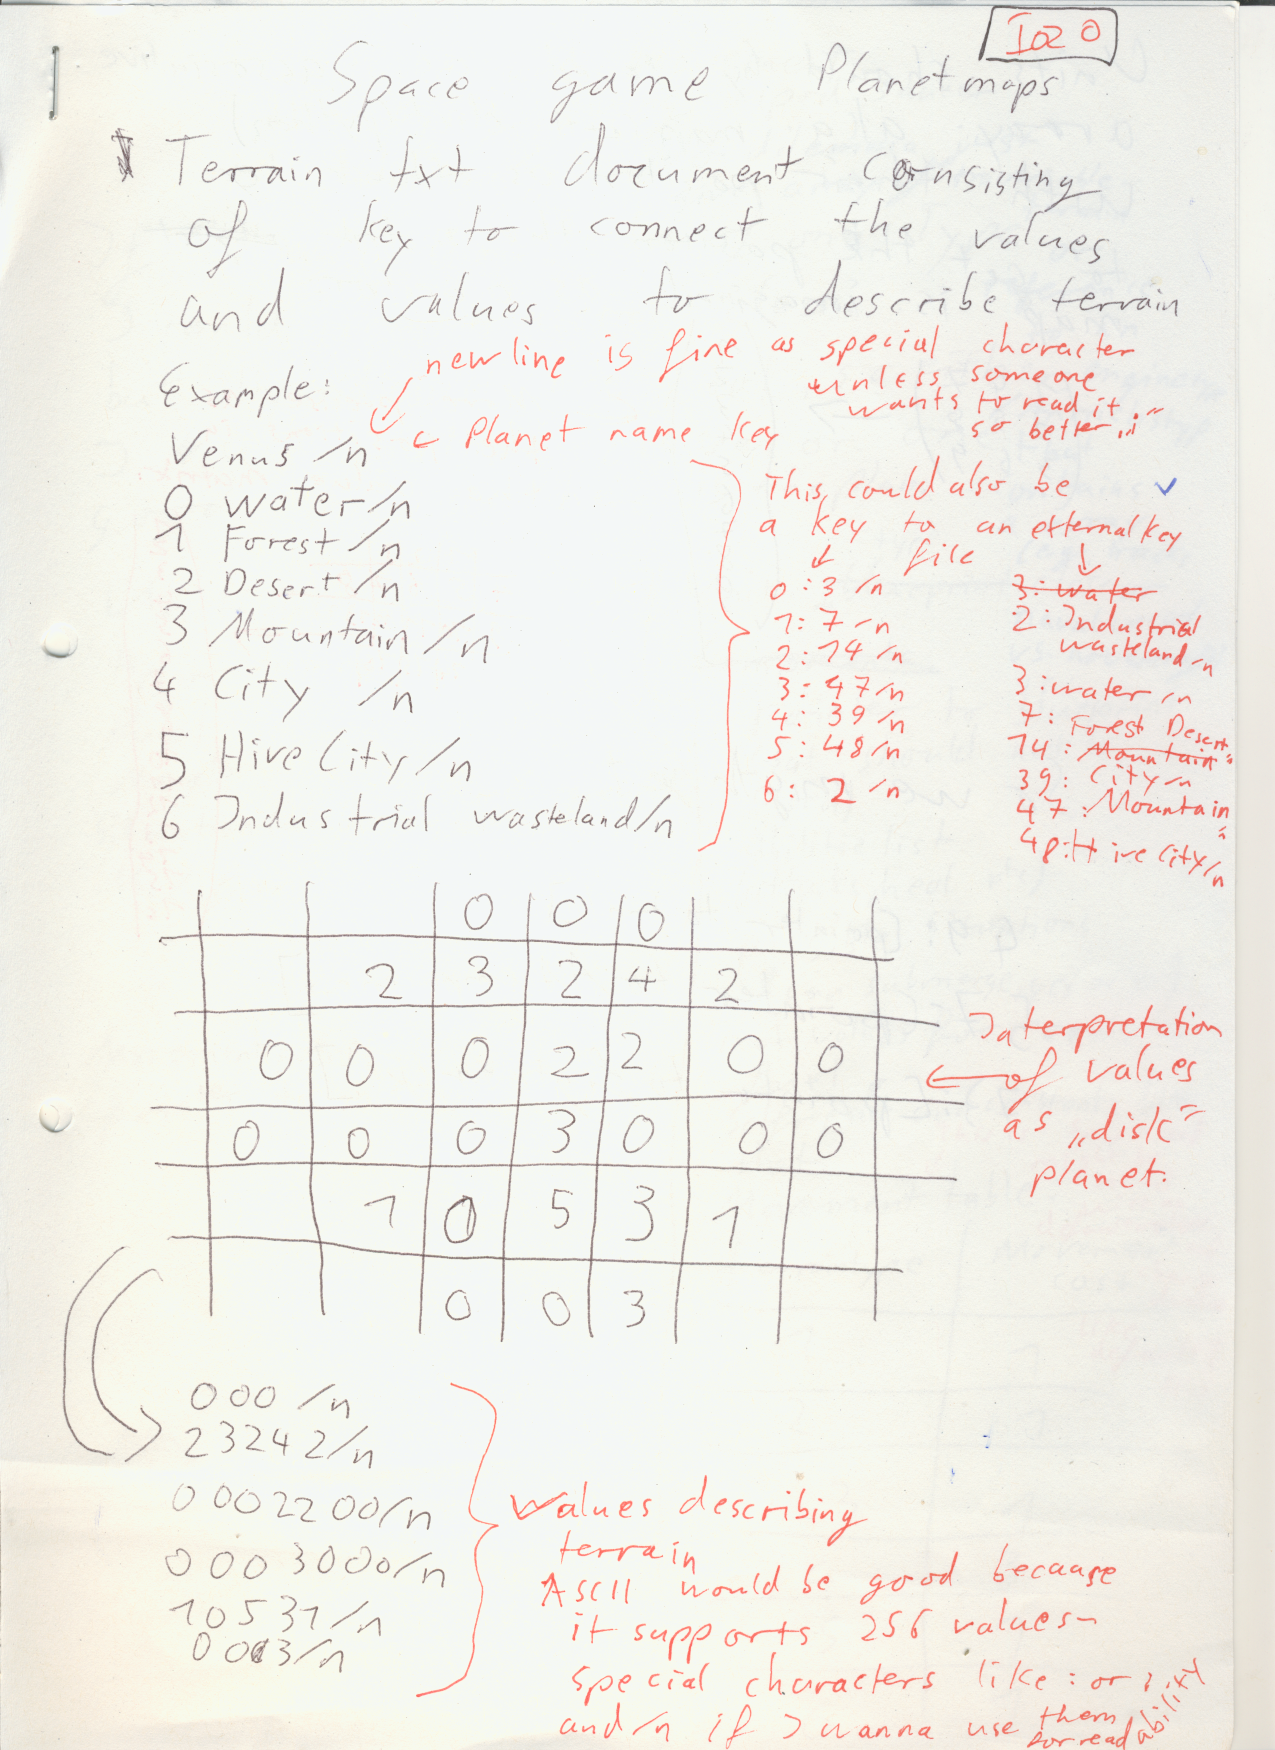 I020
Space game Planetmaps
Terrain txt document consisting
of key to connect the values
and values to describe terrain
newline is fine as special character
unless someone
wants to read it."
so better ;
Example:
Venus /n
← Planet name key
0 water/n
1 Forest/n
2 Desert/n
3 Mountain/n
4 City /n
5 Hive City/n
6 Industrial wasteland/n
This could also be
a key to an external key
file
0:3/n
1:7/n
2:14/n
3:47/n
4:39/n
5:48/n
6:2/n
3:water
2:Industrial
wasteland/n
3:water/n
7: Forest Desert
14: Mountain"
39: City/n
47: Mountain
"
48:Hive City/n
0 0 0
2 3 2 4 2
0 0 0 2 2 0 0
0 0 0 3 0 0 0
1 0 5 3 1
0 0 3
Interpretation
of values
as „disk"
planet.
000/n
23242/n
0002200/n
0003000/n
10531/n
003/n
Values describing
terrain
ASCII would be good because
it supports 256 values-
special characters like : or ;
and /n if I wanna use them
for readability